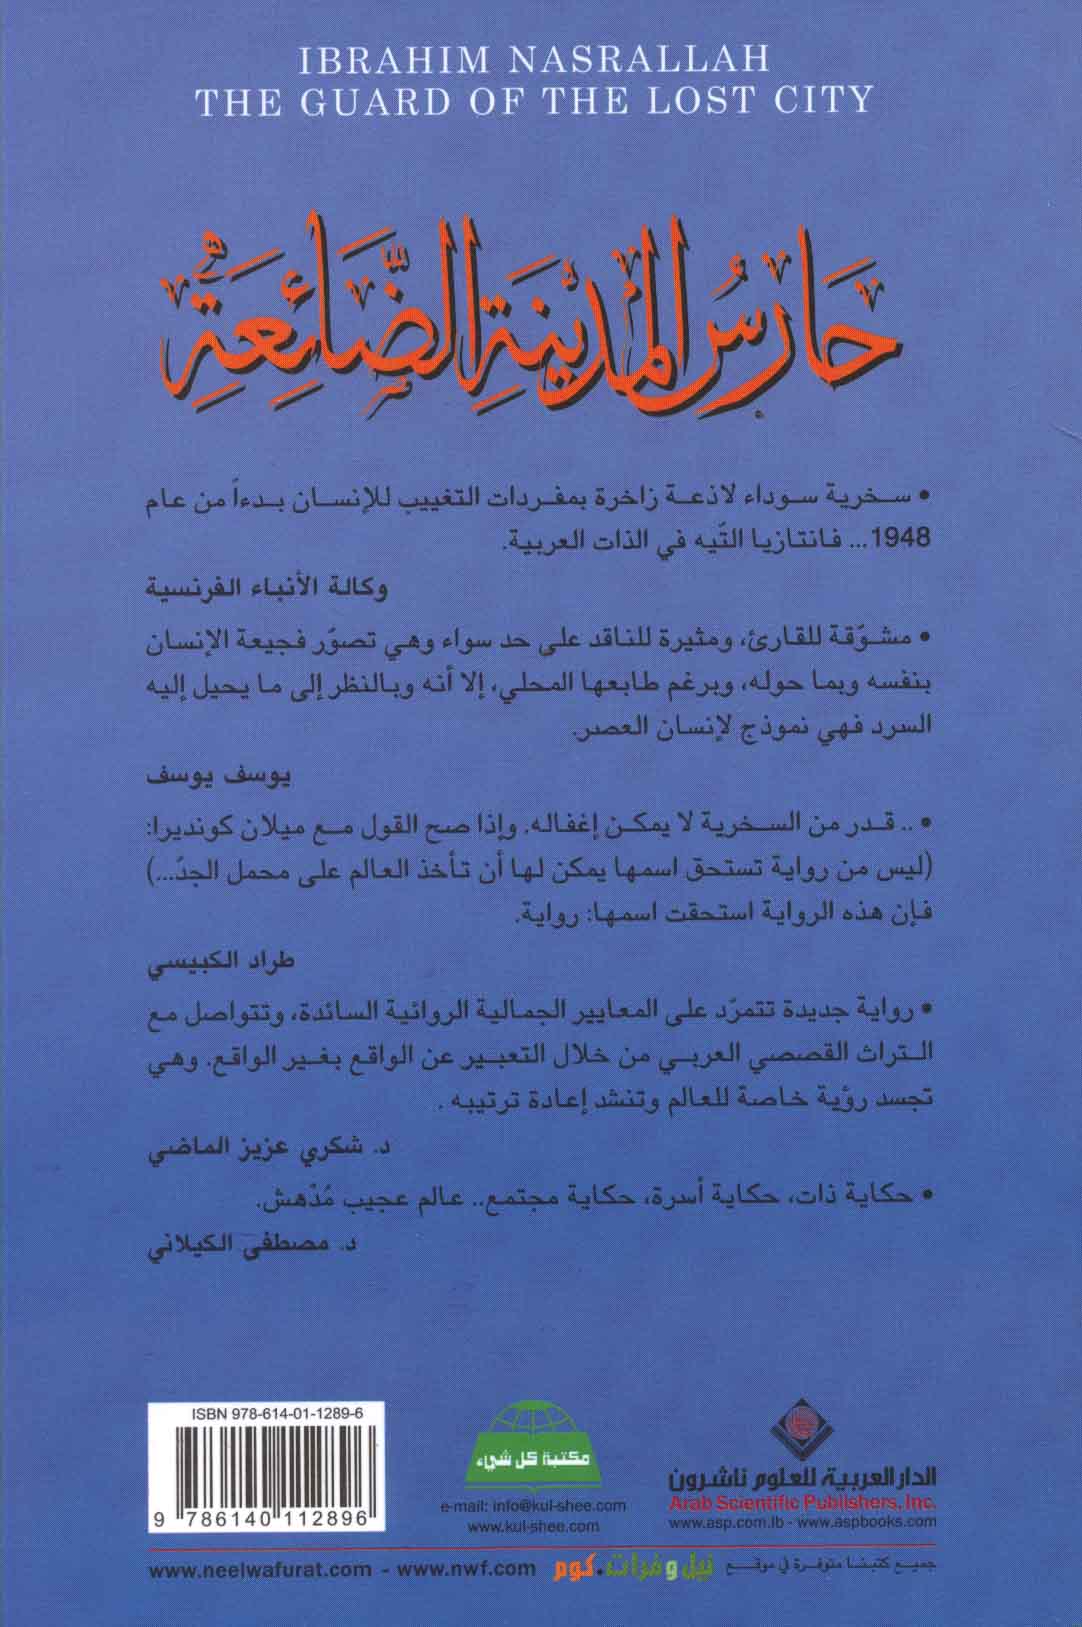 IBRAHIM NASRALLAH
THE GUARD OF THE LOST CITY
حَارسُ المدينَةِ الضَّائِعَةِ
• سخرية سوداء لاذعة زاخرة بمفردات التغييب للإنسان بدءاً من عام
1948... فانتازيا التّيه في الذات العربية.
وكالة الأنباء الفرنسية
• مشوّقة للقارئ، ومثيرة للناقد على حد سواء وهي تصوّر فجيعة الإنسان
بنفسه وبما حوله، وبرغم طابعها المحلي، إلا أنه وبالنظر إلى ما يحيل إليه
السرد فهي نموذج لإنسان العصر.
يوسف يوسف
• .. قدر من السخرية لا يمكن إغفاله. وإذا صح القول مع ميلان كونديرا:
(ليس من رواية تستحق اسمها يمكن لها أن تأخذ العالم على محمل الجدّ...)
فإن هذه الرواية استحقت اسمها: رواية.
طراد الكبيسي
• رواية جديدة تتمرّد على المعايير الجمالية الروائية السائدة، وتتواصل مع
التراث القصصي العربي من خلال التعبير عن الواقع بغير الواقع. وهي
تجسد رؤية خاصة للعالم وتنشد إعادة ترتيبه .
د. شكري عزيز الماضي
• حكاية ذات، حكاية أسرة، حكاية مجتمع.. عالم عجيب مُدْهش.
د. مصطفى الكيلاني
ISBN 978-614-01-1289-6
9 786140 112896
مكتبة كل شيء
e-mail: info@kul-shee.com
www.kul-shee.com
الدار العربية للعلوم ناشرون
Arab Scientific Publishers, Inc.
www.asp.com.lb - www.aspbooks.com
جميع كتبنا متوفرة في موقع نيل وفرات.كوم www.neelwafurat.com - www.nwf.com